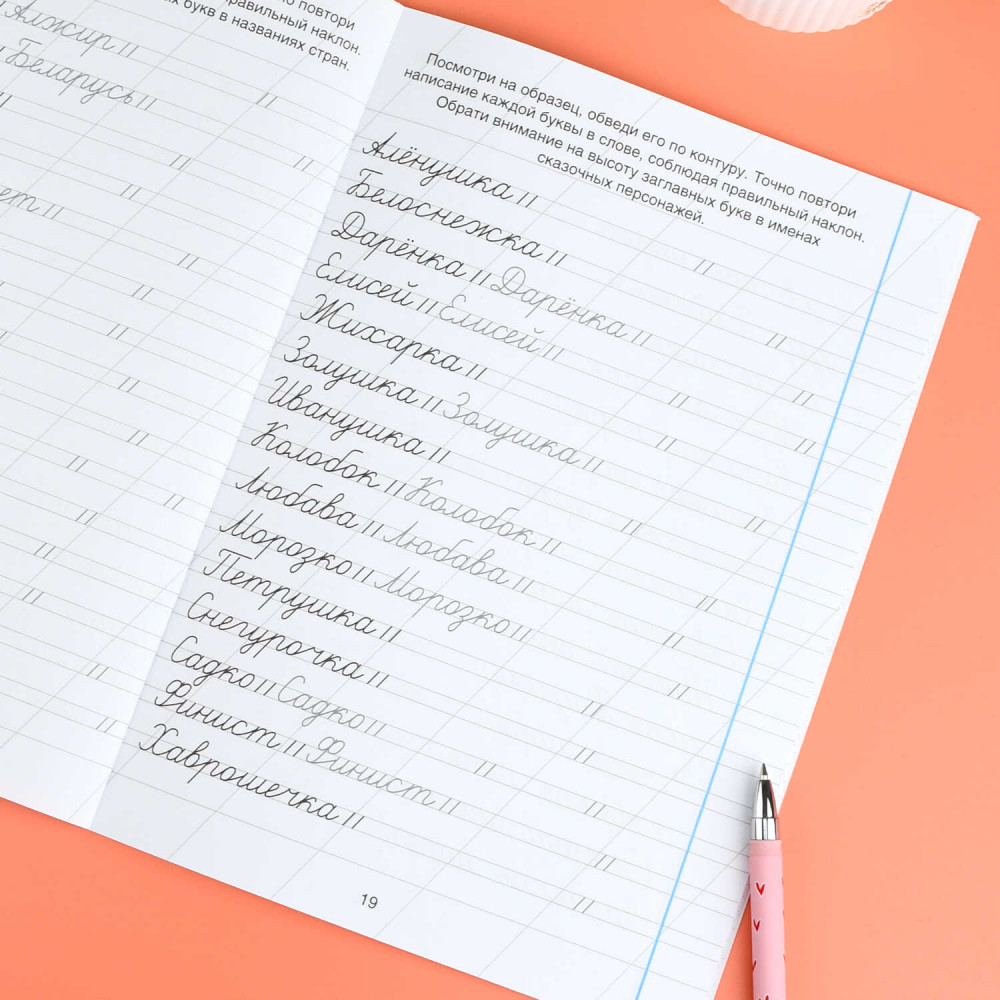 но повтори
равильный наклон.
х букв в названиях стран.
Алжир
Беларусь
ет
Посмотри на образец, обведи его по контуру. Точно повтори
написание каждой буквы в слове, соблюдая правильный наклон.
Обрати внимание на высоту заглавных букв в именах
сказочных персонажей.
Алёнушка
Белоснежка
Дарёнка Дарёнка
Елисей Елисей
Жихарка
Золушка Золушка
Иванушка
Колобок Колобок
Любава Любава
Морозко Морозко
Петрушка
Снегурочка
Садко Садко
Финист Финист
Хаврошечка
19